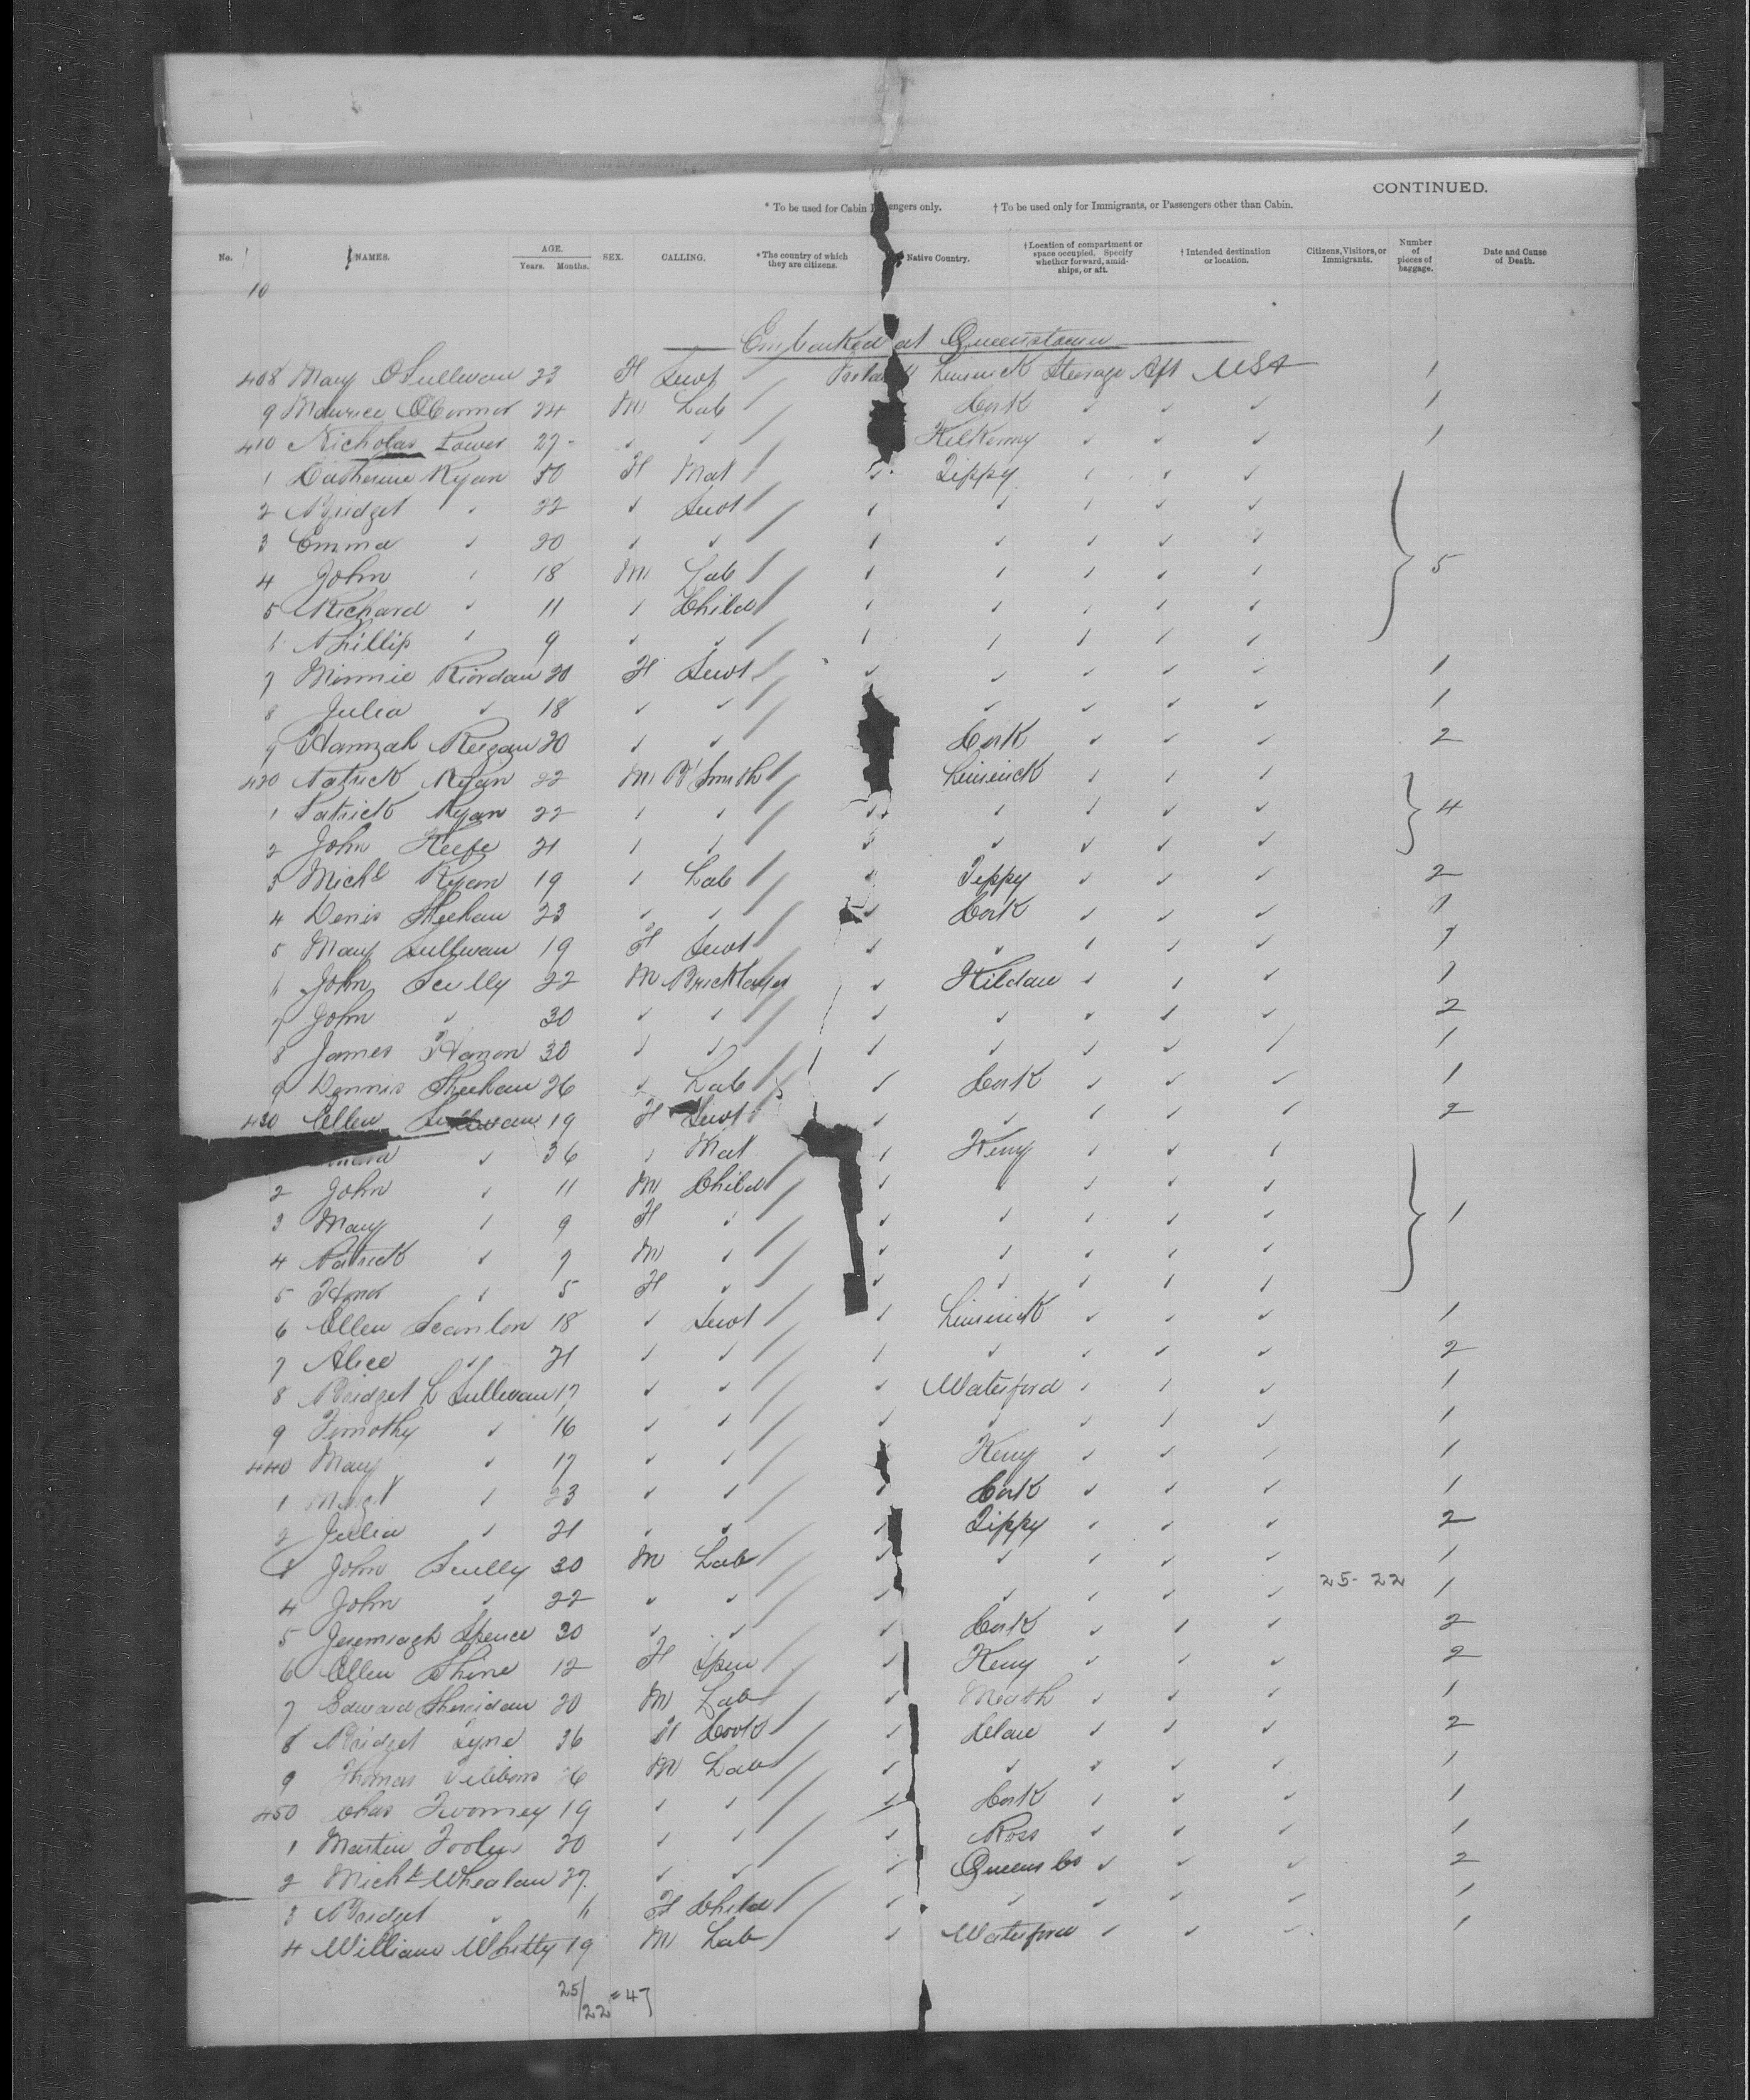 CONTINUED.
* To be used for Cabin Passengers only. † To be used only for Immigrants, or Passengers other than Cabin.
No. NAMES. AGE. Years. Months. SEX. CALLING. * The country of which they are citizens. Native Country. † Location of compartment or space occupied. Specify whether forward, amidships, or aft. † Intended destination or location. Citizens, Visitors, or Immigrants. Number of pieces of baggage. Date and Cause of Death.
10
Embarked at Queenstown
408 Mary O Sullivan 23 F Servt Ireland Limerick Steerage Aft USA 1
9 Maurice O Connor 24 M Lab Cork ✓ ✓ ✓ 1
410 Nicholas Power 27 ✓ ✓ Kilkenny ✓ ✓ ✓ 1
1 Catherine Ryan 50 F Mat ✓ Tippy ✓ ✓ ✓
2 Bridget ✓ 22 ✓ Servt ✓ ✓ ✓ ✓ ✓
3 Emma ✓ 20 ✓ ✓ ✓ ✓ ✓ ✓ ✓
4 John ✓ 18 M Lab ✓ ✓ ✓ ✓ ✓ } 5
5 Richard ✓ 11 ✓ Child ✓ ✓ ✓ ✓ ✓
6 Phillip ✓ 9 ✓ ✓ ✓ ✓ ✓ ✓ ✓
7 Minnie Riordan 20 F Servt ✓ ✓ ✓ ✓ ✓ 1
8 Julia ✓ 18 ✓ ✓ ✓ ✓ ✓ ✓ 1
9 Hannah Reegan 20 ✓ ✓ Cork ✓ ✓ ✓ 2
420 Patrick Ryan 22 M Bl Smith Limerick ✓ ✓ ✓
1 Patrick Ryan 22 ✓ ✓ ✓ ✓ ✓ ✓ ✓ } 4
2 John Keefe 21 ✓ ✓ ✓ ✓ ✓ ✓ ✓
3 Michl Ryan 19 ✓ Lab ✓ Tippy ✓ ✓ ✓ 2
4 Denis Sheehan 23 ✓ ✓ ✓ Cork ✓ ✓ ✓ 1
5 Mary Sullivan 19 F Servt ✓ ✓ ✓ ✓ ✓ 1
6 John Scully 22 M Bricklayer ✓ Kildare ✓ ✓ ✓ 1
7 John ✓ 30 ✓ ✓ ✓ ✓ ✓ ✓ ✓ 2
8 James Hanon 30 ✓ ✓ ✓ ✓ ✓ ✓ ✓ 1
9 Dennis Sheehan 26 ✓ Lab ✓ Cork ✓ ✓ ✓ 1
430 Ellen Sullivan 19 F Servt ✓ ✓ ✓ ✓ ✓ 2
✓ 36 ✓ Mat ✓ Kerry ✓ ✓ ✓
2 John ✓ 11 M Child ✓ ✓ ✓ ✓ ✓
3 Mary ✓ 9 F ✓ ✓ ✓ ✓ ✓ ✓ } 1
4 Patrick ✓ 7 M ✓ ✓ ✓ ✓ ✓ ✓
5 Honor ✓ 5 F ✓ ✓ ✓ ✓ ✓ ✓
6 Ellen Scanlon 18 ✓ Servt ✓ Limerick ✓ ✓ ✓ 1
7 Alice ✓ 21 ✓ ✓ ✓ ✓ ✓ ✓ ✓ 2
8 Bridget L Sullivan 17 ✓ ✓ ✓ Waterford ✓ ✓ ✓ 1
9 Timothy ✓ 16 ✓ ✓ ✓ ✓ ✓ ✓ ✓ 1
440 Mary ✓ 17 ✓ ✓ Kerry ✓ ✓ ✓ 1
1 Margt ✓ 23 ✓ ✓ ✓ Cork ✓ ✓ ✓ 1
2 Julia ✓ 21 ✓ ✓ ✓ Tippy ✓ ✓ ✓ 2
3 John Scully 30 M Lab ✓ ✓ ✓ ✓ ✓ 1
4 John ✓ 22 ✓ ✓ ✓ ✓ ✓ ✓ ✓ 25-22 1
5 Jeremiagh Spence 30 ✓ ✓ ✓ Cork ✓ ✓ ✓ 2
6 Ellen Shine 12 F Spin ✓ Kerry ✓ ✓ ✓ 2
7 Edward Sheridan 20 M Lab ✓ Meath ✓ ✓ ✓ 1
8 Bridget Lyne 36 F Cook ✓ Clare ✓ ✓ ✓ 2
9 Thomas 26 M Lab ✓ ✓ ✓ ✓ ✓ 1
450 Chas Twomey 19 ✓ ✓ ✓ Cork ✓ ✓ ✓ 1
1 Martin 20 ✓ ✓ ✓ Ross ✓ ✓ ✓ 1
2 Michl Whealan 27 ✓ ✓ ✓ Queens Co ✓ ✓ ✓ 2
3 Bridget ✓ F Child ✓ ✓ ✓ ✓ ✓ 1
4 William Whitty 19 M Lab ✓ Waterford ✓ ✓ ✓ 1
25/22 = 47